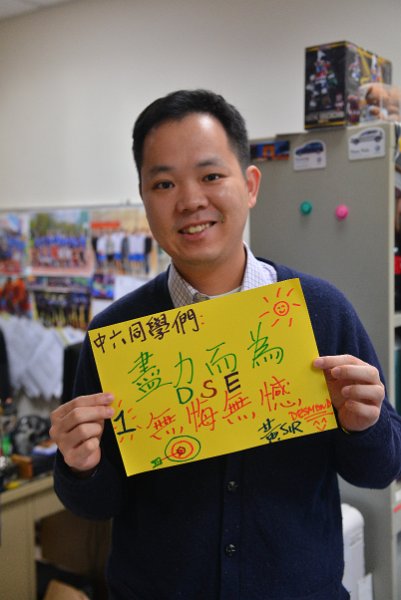 中六同學們:
盡力而為
DSE
無悔無憾
黃SIR
DESMOND